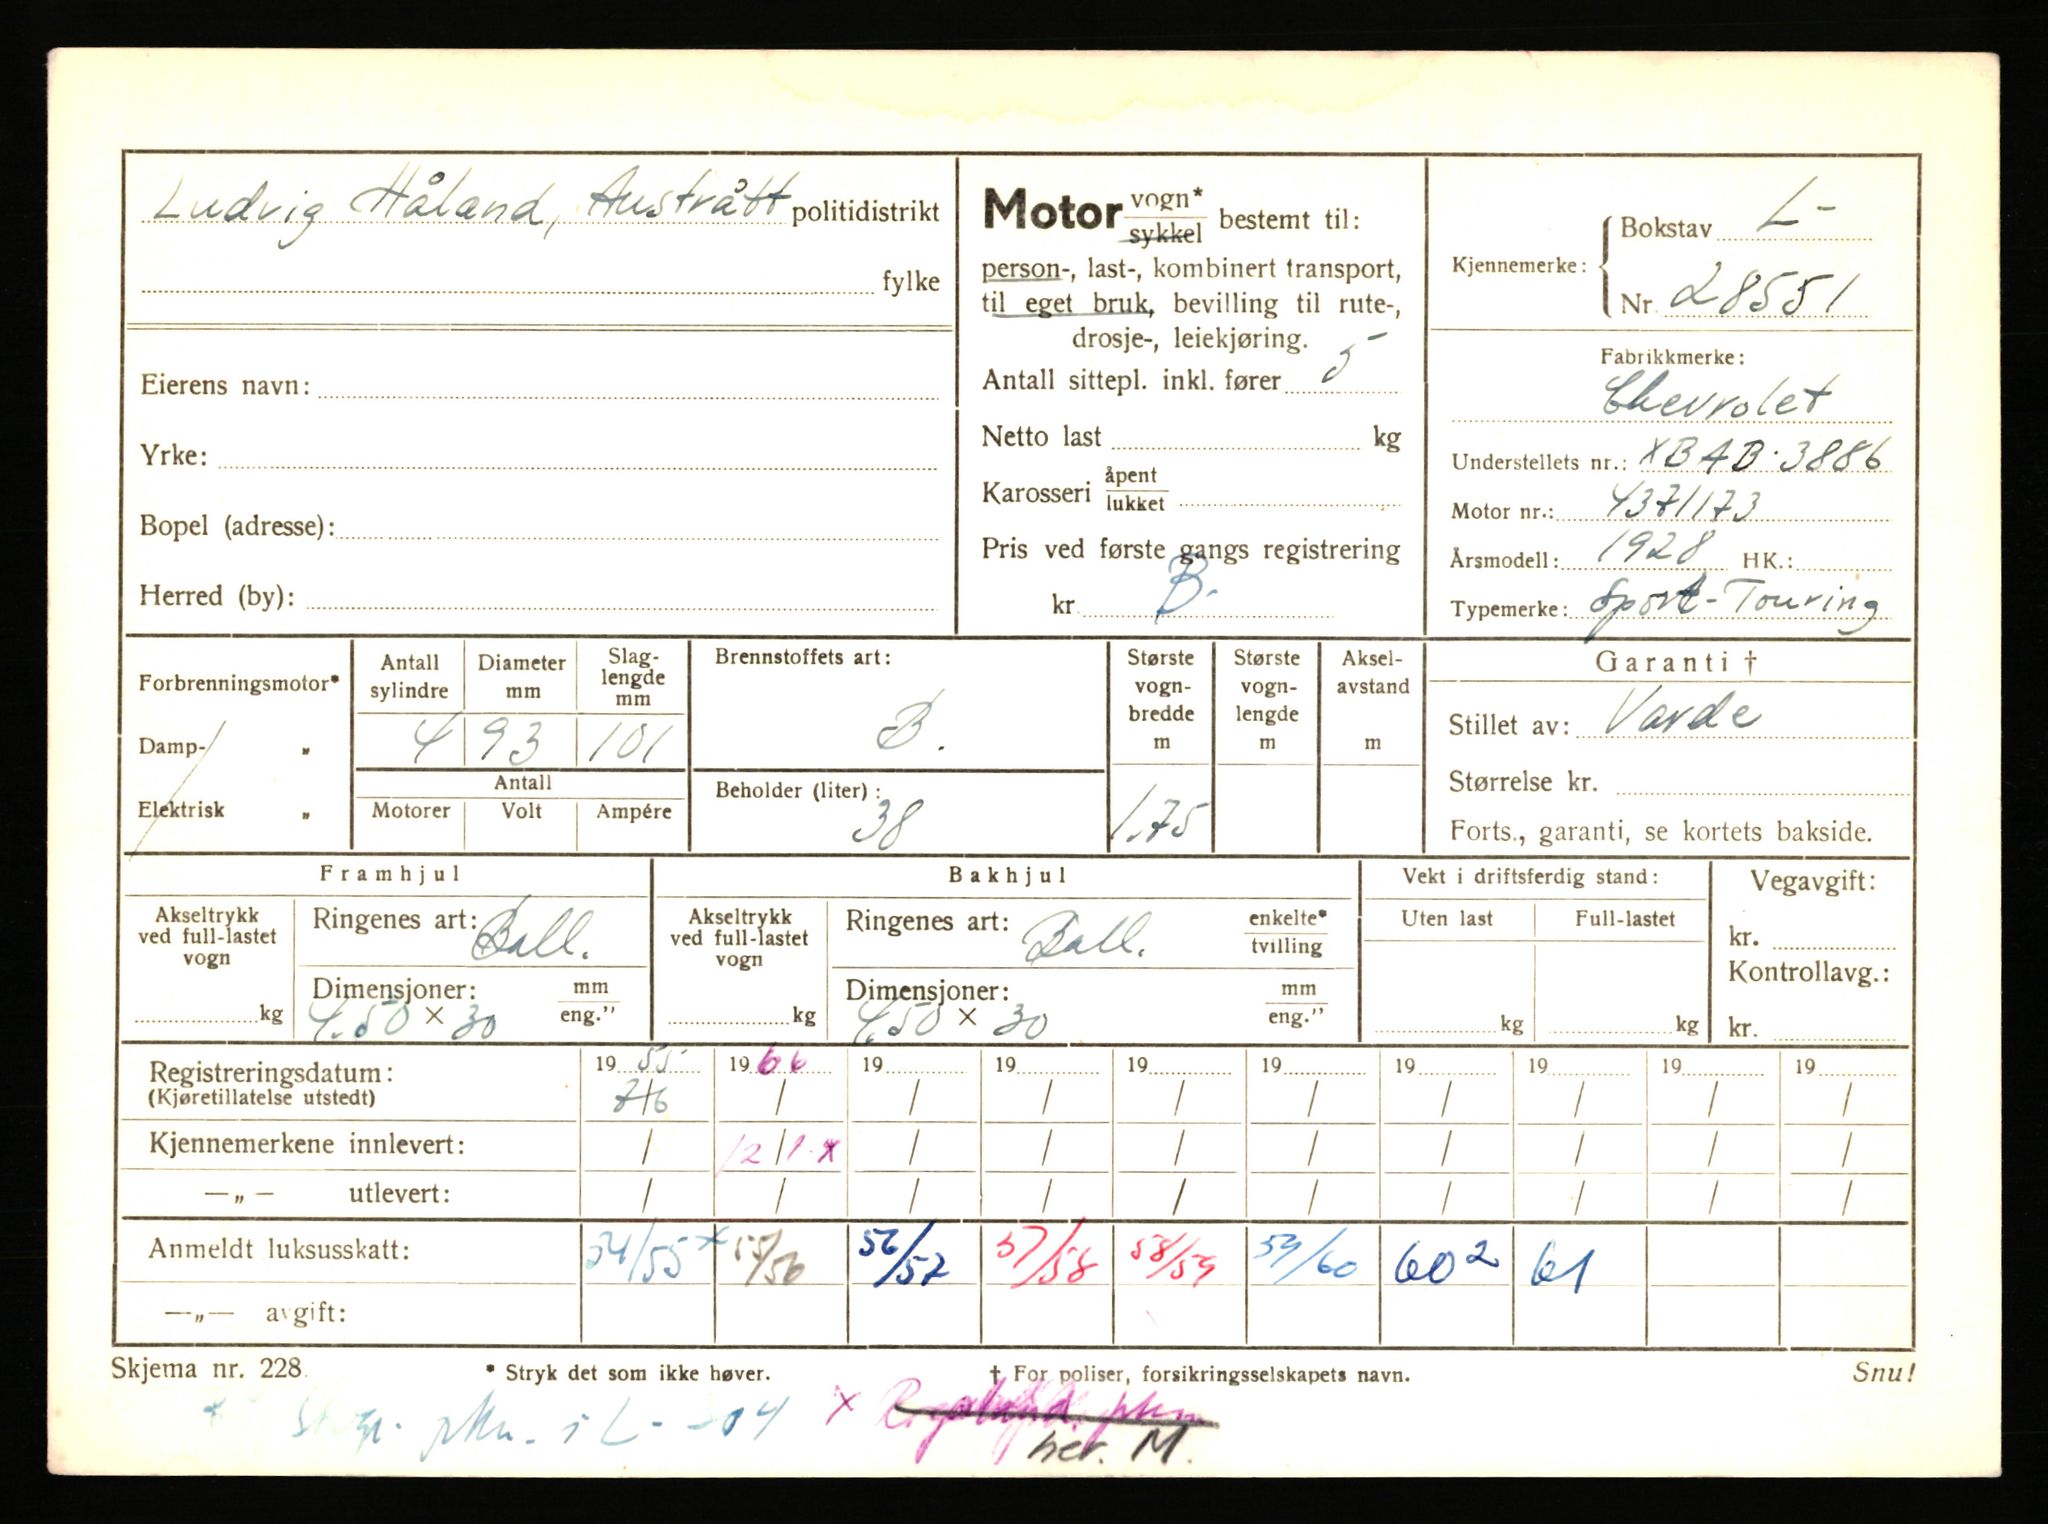 Ludvig Håland, Austrått politidistrikt
fylke
Eierens navn:
Yrke:
Bopel (adresse):
Herred (by):
Motor vogn* sykkel bestemt til:
person-, last-, kombinert transport,
til eget bruk, bevilling til rute-,
drosje-, leiekjøring.
Antall sittepl. inkl. fører 5
Netto last kg
Karosseri åpent lukket
Pris ved første gangs registrering
kr B.
Kjennemerke: Bokstav L-
Nr. 28551
Fabrikkmerke:
Chevrolet
Understellets nr.: XBAB·3886
Motor nr.: 4371173
Årsmodell: 1928 HK.:
Typemerke: Sport-Touring
Forbrenningsmotor*
Damp- „
Elektrisk „
Antall sylindre 4
Diameter mm 93
Slaglengde mm 101
Antall
Motorer Volt Ampére
Brennstoffets art: B.
Beholder (liter): 38
Største vognbredde m 1.75
Største vognlengde m
Akselavstand m
Garanti †
Stillet av: Varde
Størrelse kr.
Forts., garanti, se kortets bakside.
Framhjul
Akseltrykk ved full-lastet vogn kg
Ringenes art: Ball.
Dimensjoner: 4.50 × 30 mm eng.”
Bakhjul
Akseltrykk ved full-lastet vogn kg
Ringenes art: Ball. enkelte* tvilling
Dimensjoner: 4.50 × 30 mm eng.”
Vekt i driftsferdig stand:
Uten last kg
Full-lastet kg
Vegavgift:
kr.
Kontrollavg.:
kr.
Registreringsdatum: 1955 1966 19 19 19 19 19 19 19 19
(Kjøretillatelse utstedt) 7/6 / / / / / / / / /
Kjennemerkene innlevert: / 12/1 x / / / / / / / /
—„— utlevert: / / / / / / / / / /
Anmeldt luksusskatt: 54/55 x 55/56 56/57 57/58 58/59 59/60 60² 61
—„— avgift:
Skjema nr. 228. * Stryk det som ikke høver. † For poliser, forsikringsselskapets navn. Snu!
pkn. i L- x
her. M.